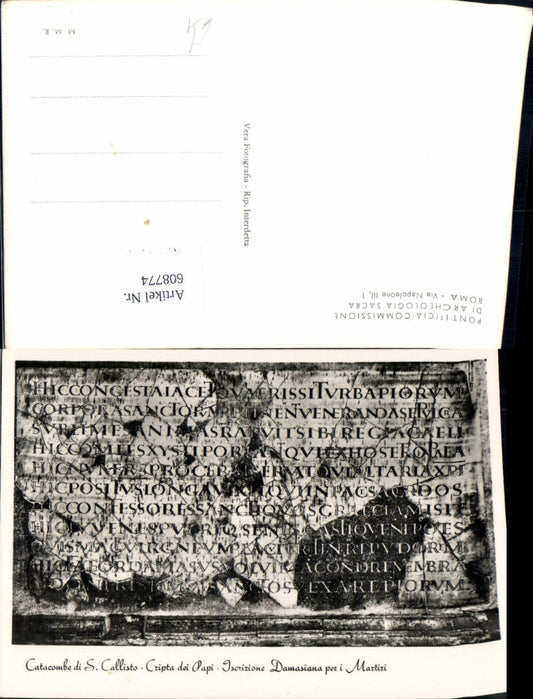 M. M. R.
Vera Fotografia - Rip. Interdetta
Artikel Nr.
608774
PONTIFICIA COMMISSIONE
DI ARCHEOLOGIA SACRA
ROMA - Via Napoleone III, 1
HIC CONGESTA IACET QVAERIS SI TVRBA PIORVM
CORPORA SANCTORVM RETINENT VENERANDA SEPVLCRA
SVBLIMES ANIMAS RAPVIT SIBI REGIA CAELI
HIC COMITES XYSTI PORTANT QVI EX HOSTE TROPAEA
HIC NVMERVS PROCERVM SERVAT QVI ALTARIA XPI
HIC POSITVS LONGA VIXIT QVI IN PACE SACERDOS
HIC CONFESSORES SANCTI QVOS GRAECIA MISIT
HIC IVVENES PVERIQ SENES CASTIQVE NEPOTES
QVIS MAGE VIRGINEVM PLACVIT RETINERE PVDOREM
HIC FATEOR DAMASVS VOLVI MEA CONDERE MEMBRA
SANCTOS VEXARE PIORVM
Catacombe di S. Callisto - Cripta dei Papi - Iscrizione Damasiana per i Martiri